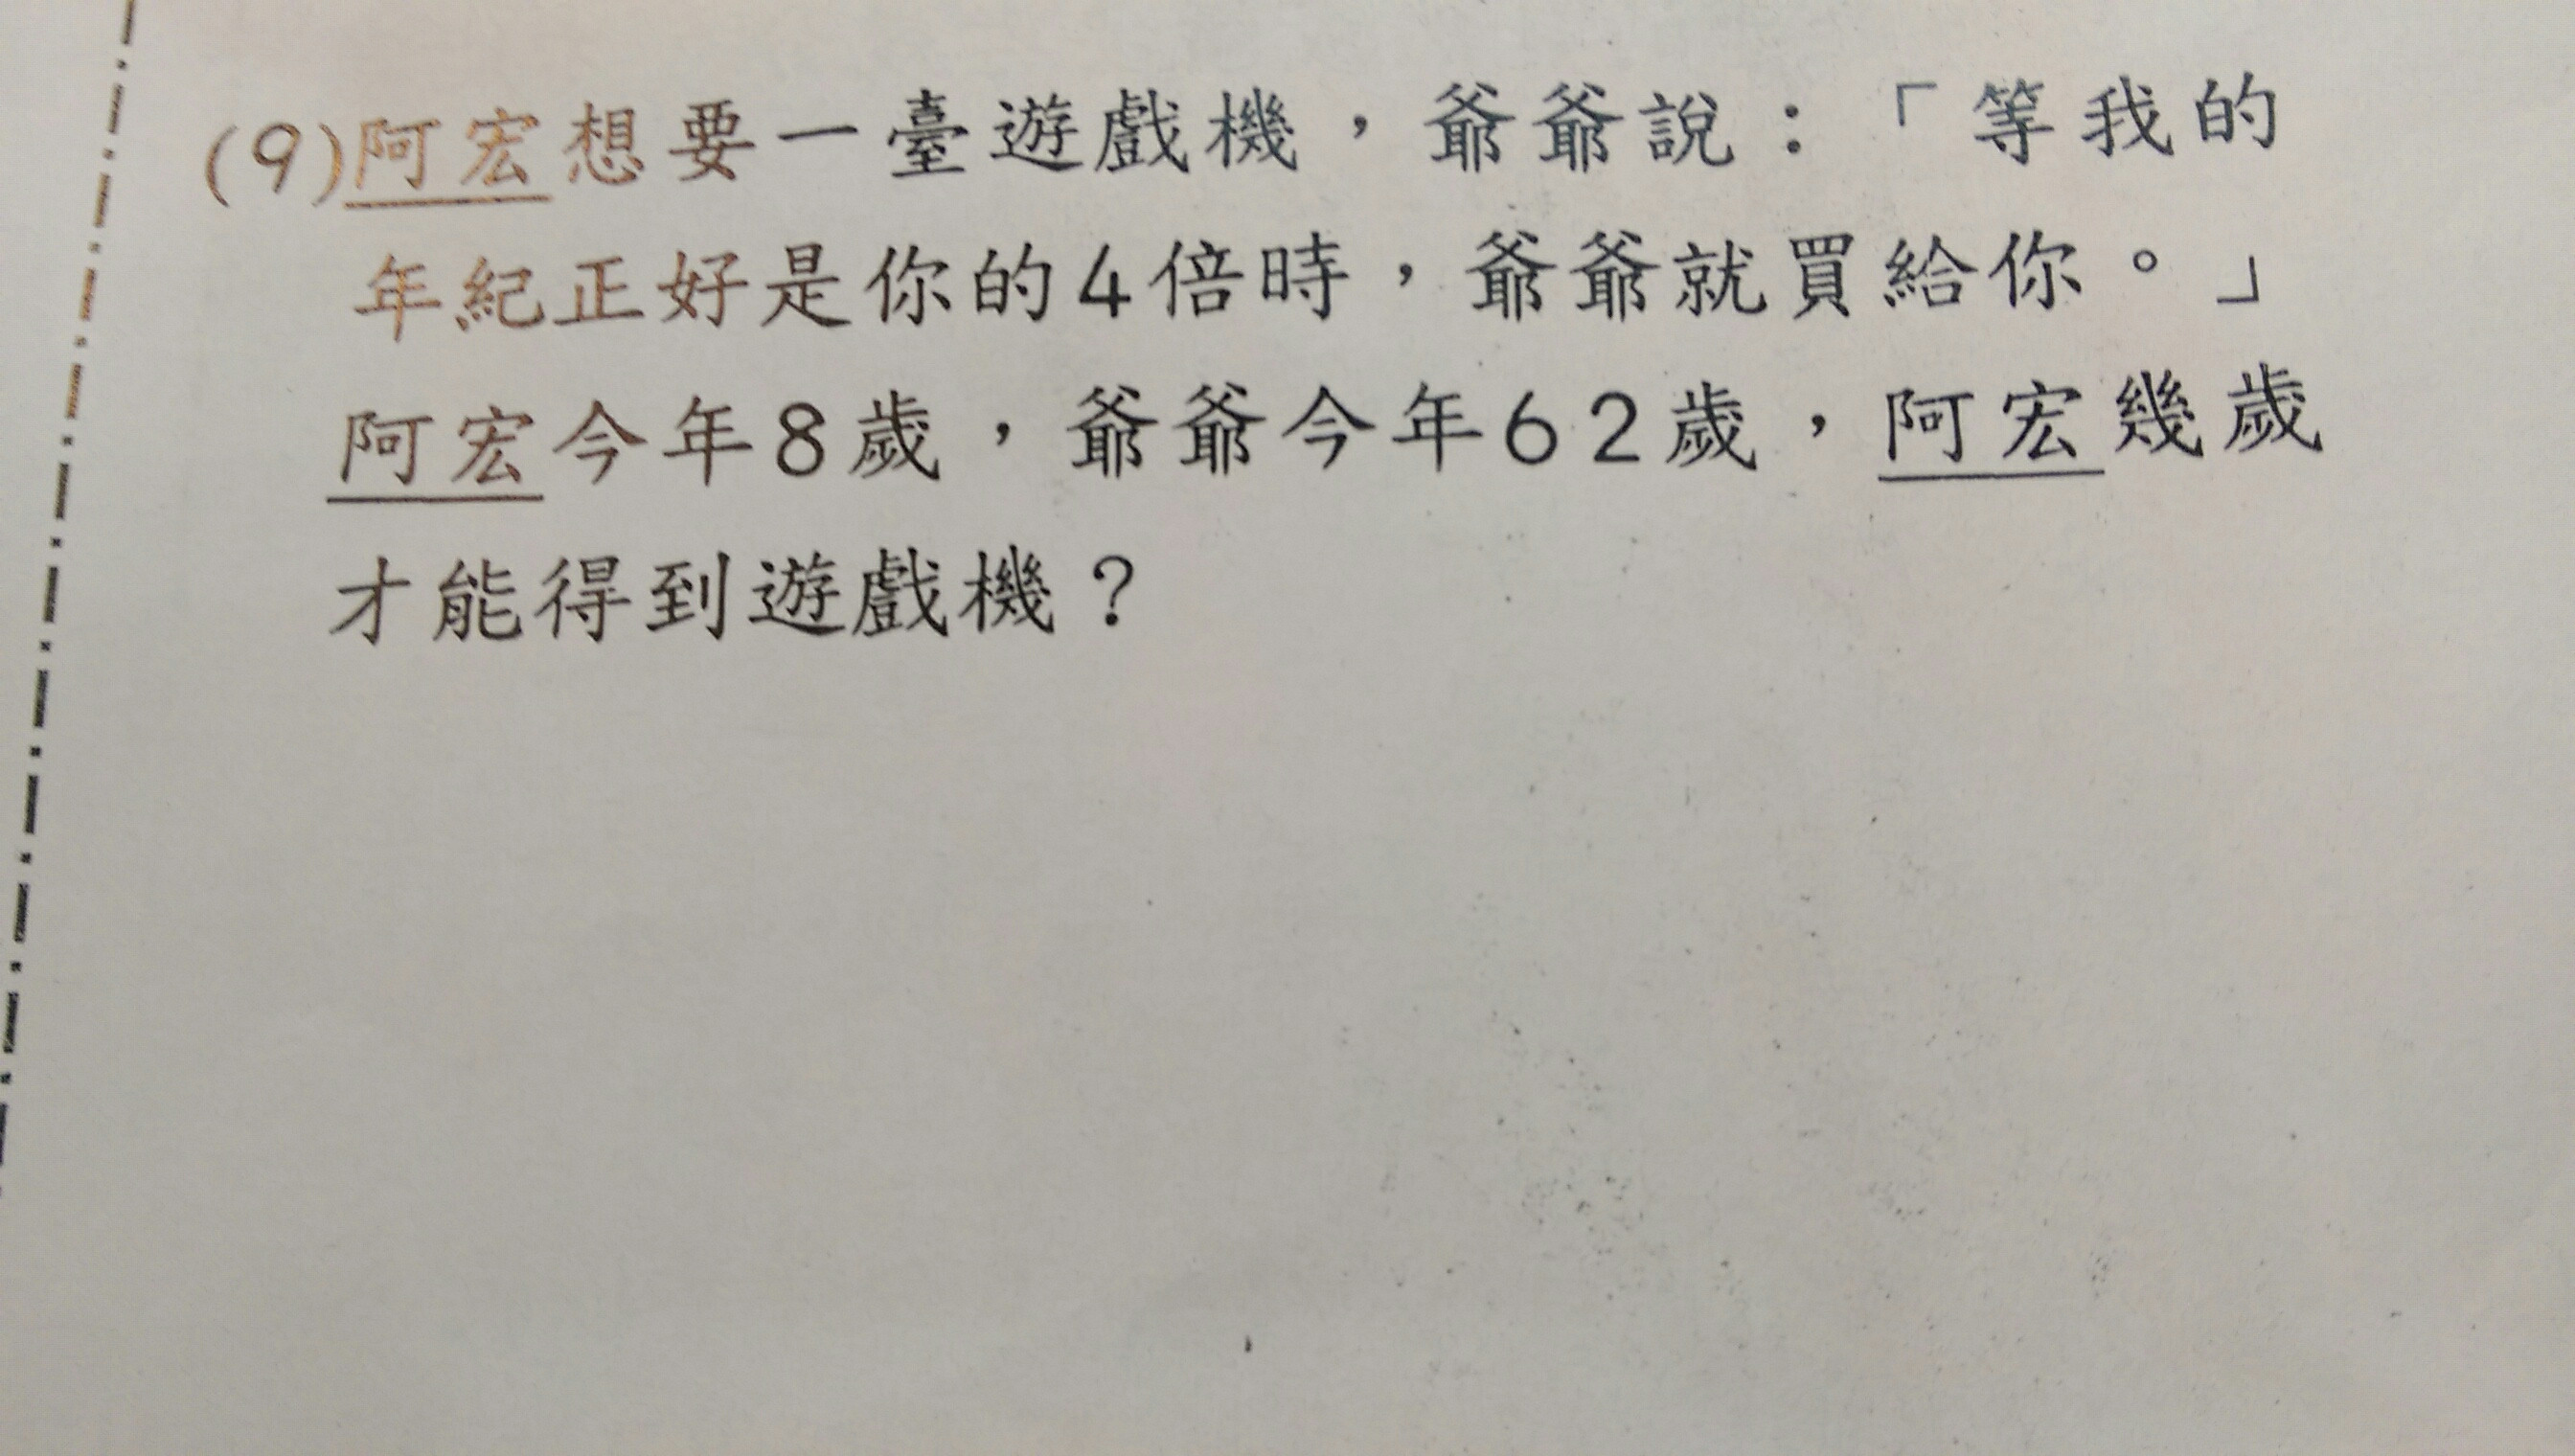 (9)阿宏想要一臺遊戲機，爺爺說：「等我的
年紀正好是你的4倍時，爺爺就買給你。」
阿宏今年8歲，爺爺今年62歲，阿宏幾歲
才能得到遊戲機？